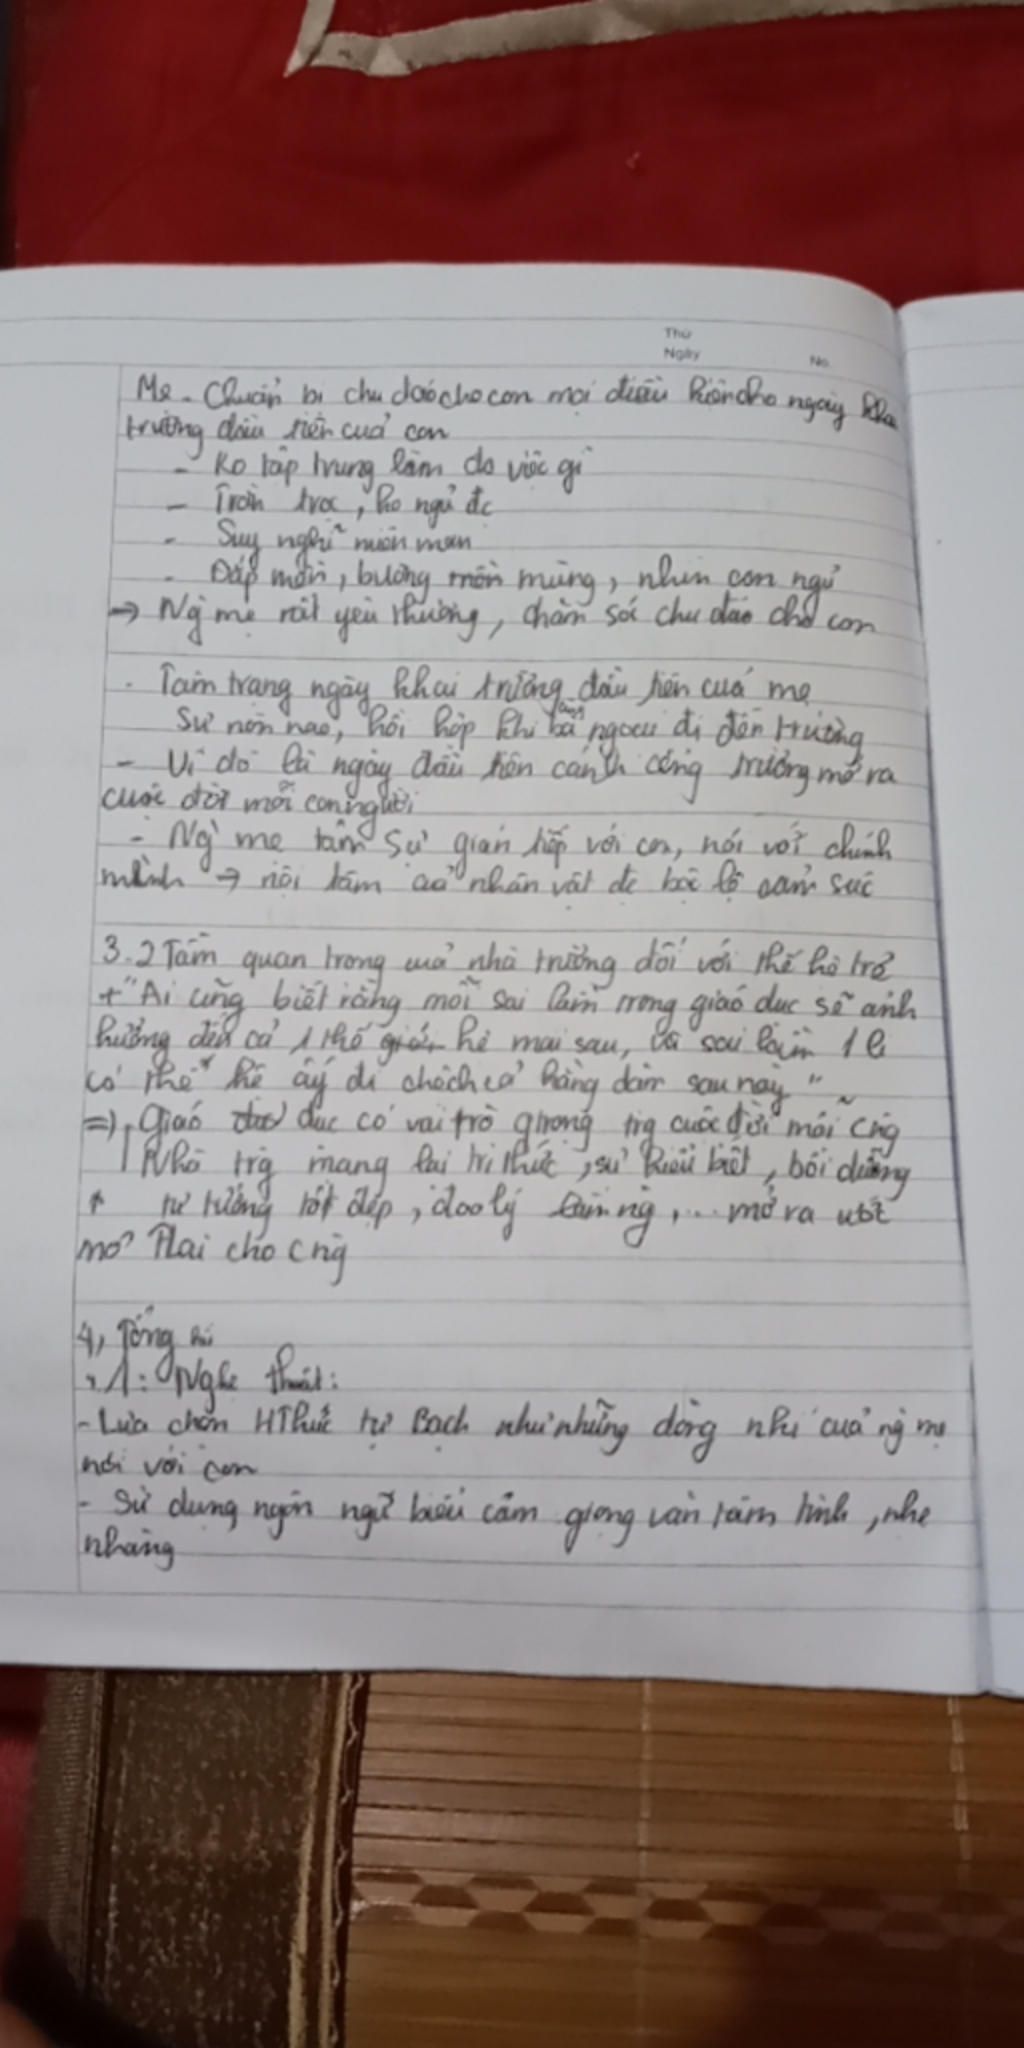 Thứ
Ngày No.
Mẹ - Chuẩn bị chu đáo cho con mọi điều kiện cho ngày khai
trường đầu tiên của con
- Ko tập trung làm đc việc gì
- Trằn trọc, ko ngủ đc
- Suy nghĩ miên man
- Đắp mền, buông mền mùng, nhìn con ngủ
→ Ng mẹ rất yêu thương, chăm sóc chu đáo cho con
- Tâm trạng ngày khai trường đầu tiên của mẹ
Sự nôn nao, hồi hộp khi bà ngoại đi đến trường
- Vì đó là ngày đầu tiên cánh cổng trường mở ra
cuộc đời mỗi con người
- Ng mẹ tâm sự gián tiếp với con, nói với chính
mình → nội tâm của nhân vật đc bộc lộ cảm xúc
3.2 Tầm quan trọng của nhà trường đối với thế hệ trẻ
+ "Ai cũng biết rằng mỗi sai lầm trong giáo dục sẽ ảnh
hưởng đến cả 1 thế giới hệ mai sau, và sai lầm 1 li
có thể hệ ấy đi chệch cả hàng dặm sau này"
=> Giáo dục có vai trò qtrọng trg cuộc đời mỗi cng
Nhà trg mang lại tri thức, sự hiểu biết, bồi dưỡng
tư tưởng tốt đẹp, đạo lý làm ng, ... mở ra ước
mơ tlai cho cng
4, Tổng kết
1: Nghệ thuật:
- Lựa chọn HThức tự Bạch như những dòng nhỉ của ng mẹ
nói với con
- Sử dụng ngôn ngữ biểu cảm giọng văn tâm tình, nhẹ
nhàng